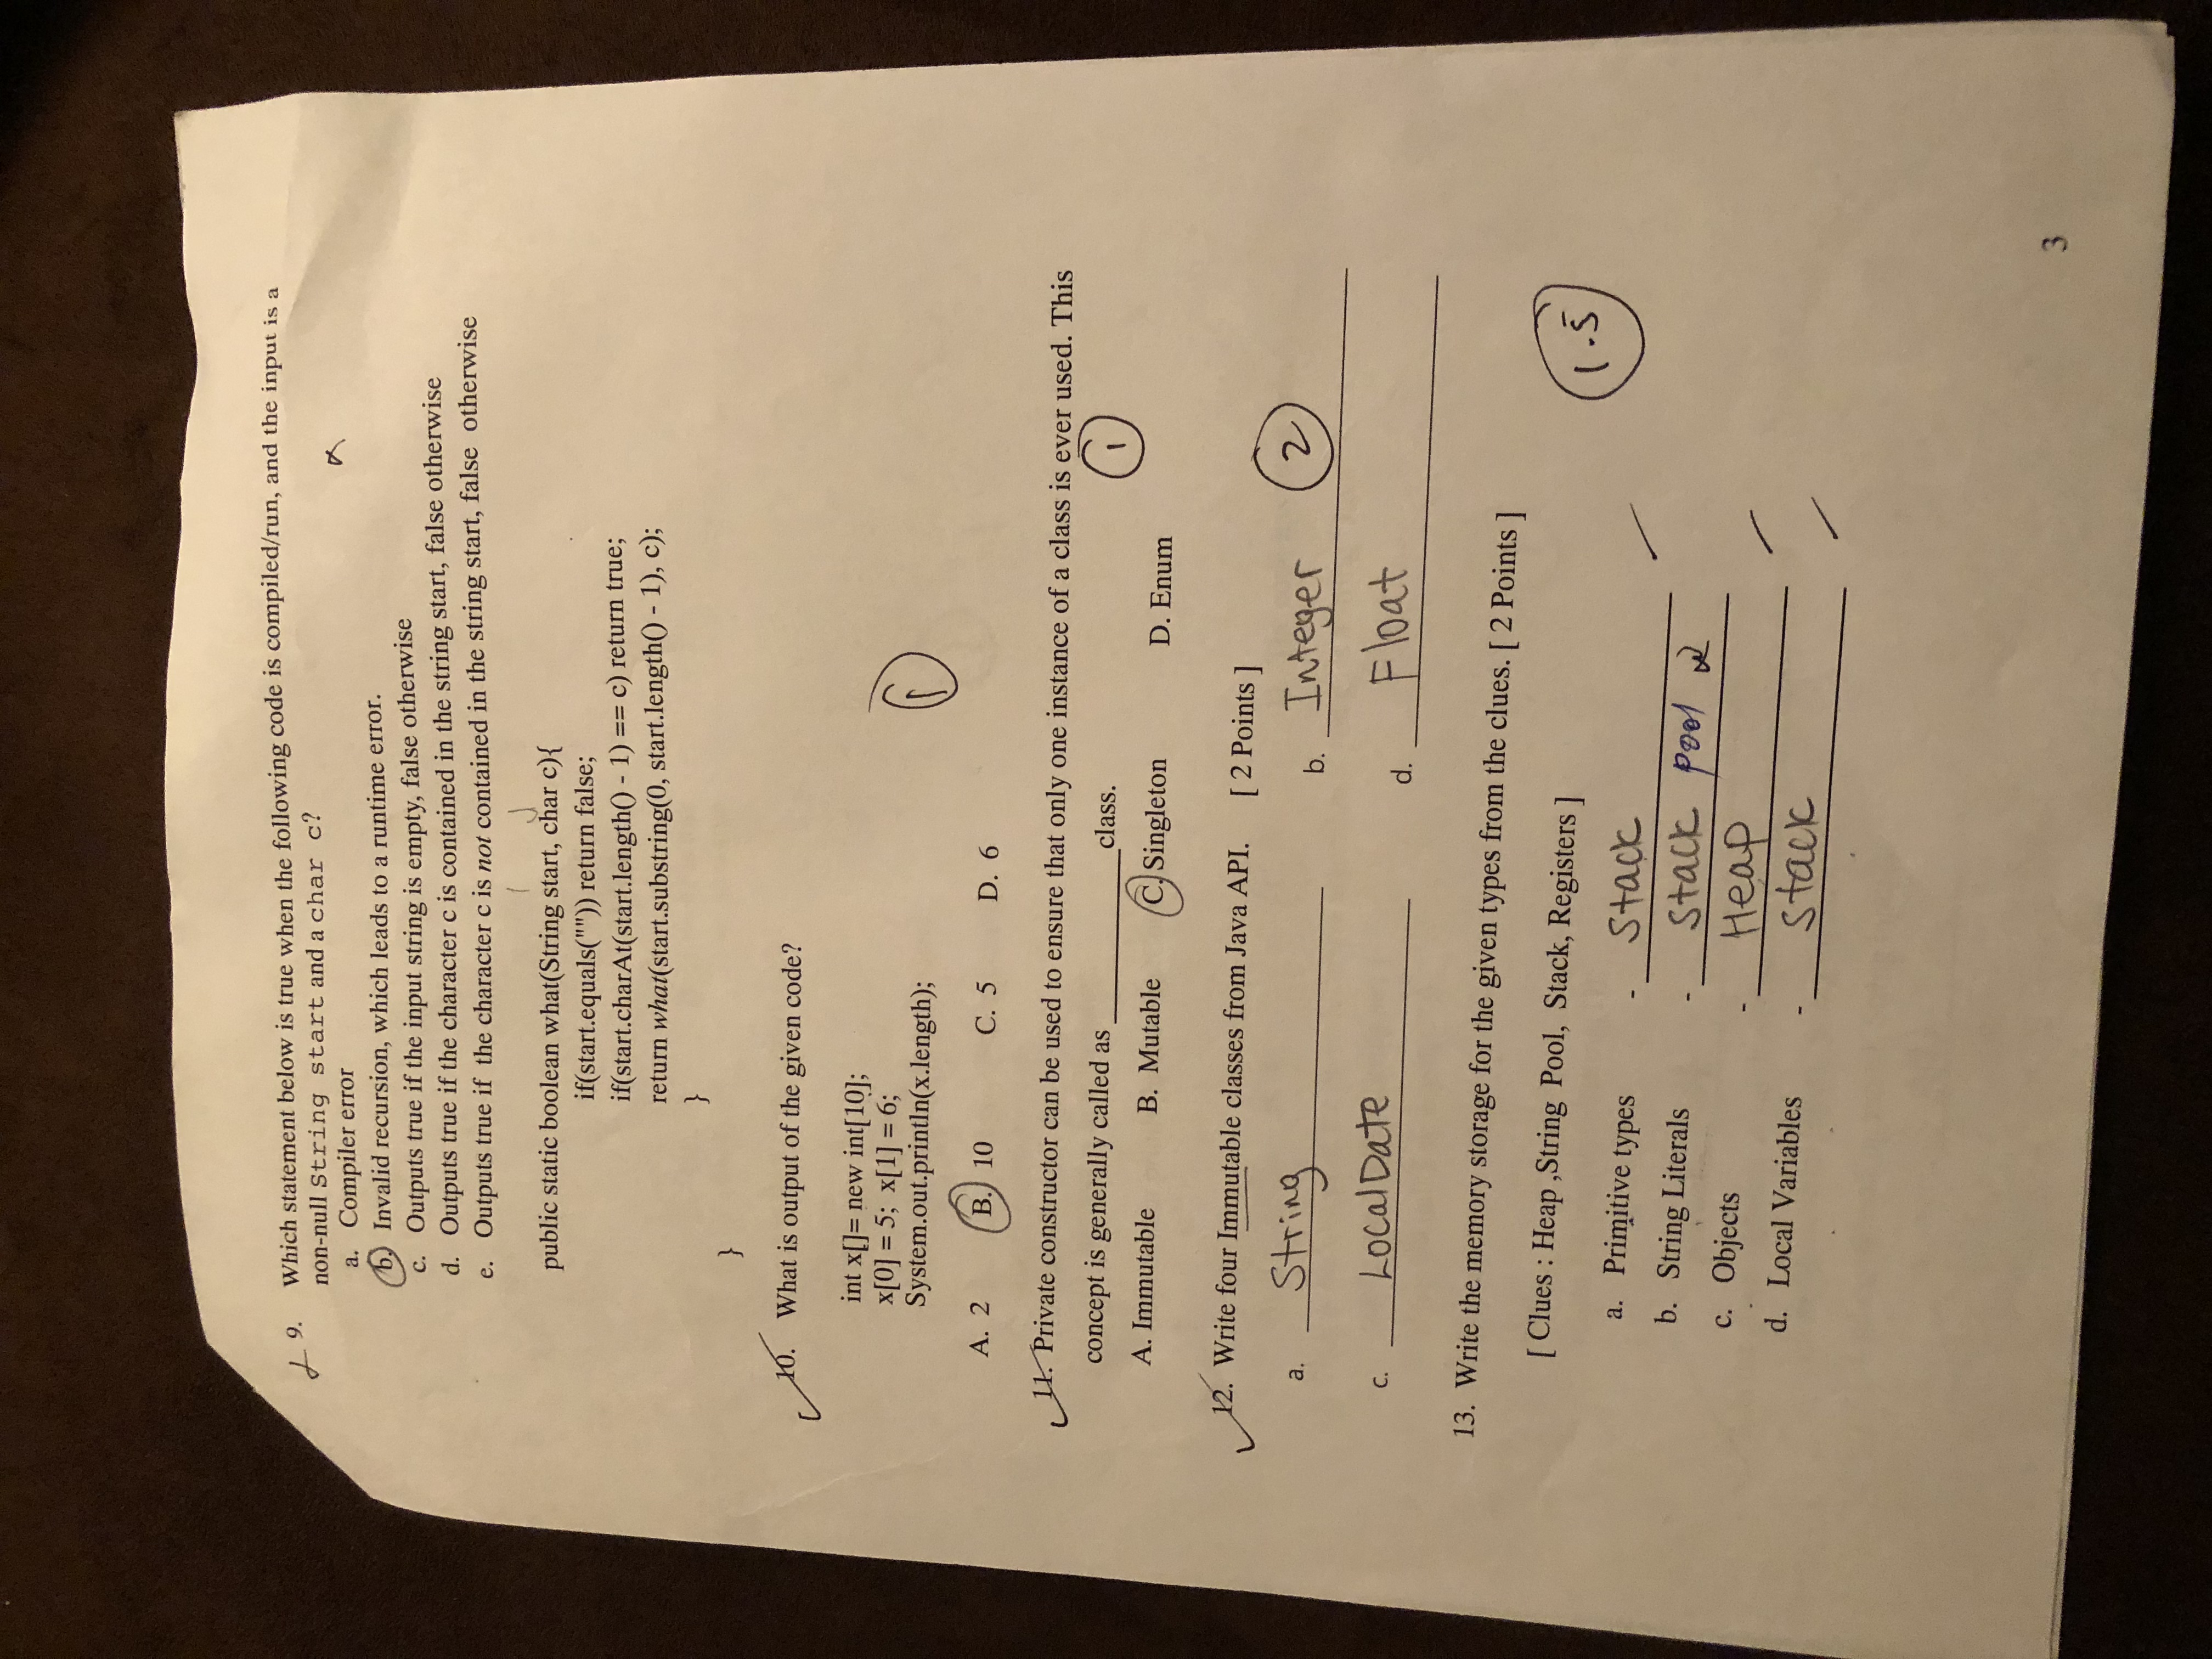 9. Which statement below is true when the following code is compiled/run, and the input is a
non-null String start and a char c?
a. Compiler error
b. Invalid recursion, which leads to a runtime error.
c. Outputs true if the input string is empty, false otherwise
d. Outputs true if the character c is contained in the string start, false otherwise
e. Outputs true if the character c is not contained in the string start, false otherwise
public static boolean what(String start, char c){
if(start.equals("")) return false;
if(start.charAt(start.length() - 1) == c) return true;
return what(start.substring(0, start.length() - 1), c);
}
}
10. What is output of the given code?
int x[]= new int[10];
x[0] = 5; x[1] = 6;
System.out.println(x.length);
1
A. 2 B. 10 C. 5 D. 6
11. Private constructor can be used to ensure that only one instance of a class is ever used. This
concept is generally called as __________ class.
1
A. Immutable B. Mutable C. Singleton D. Enum
12. Write four Immutable classes from Java API. [ 2 Points ]
a. String b. Integer 2
c. LocalDate d. Float
13. Write the memory storage for the given types from the clues. [ 2 Points ]
[ Clues : Heap ,String Pool, Stack, Registers ]
1.5
a. Primitive types - Stack
b. String Literals - Stack pool
c. Objects - Heap
d. Local Variables - Stack
3